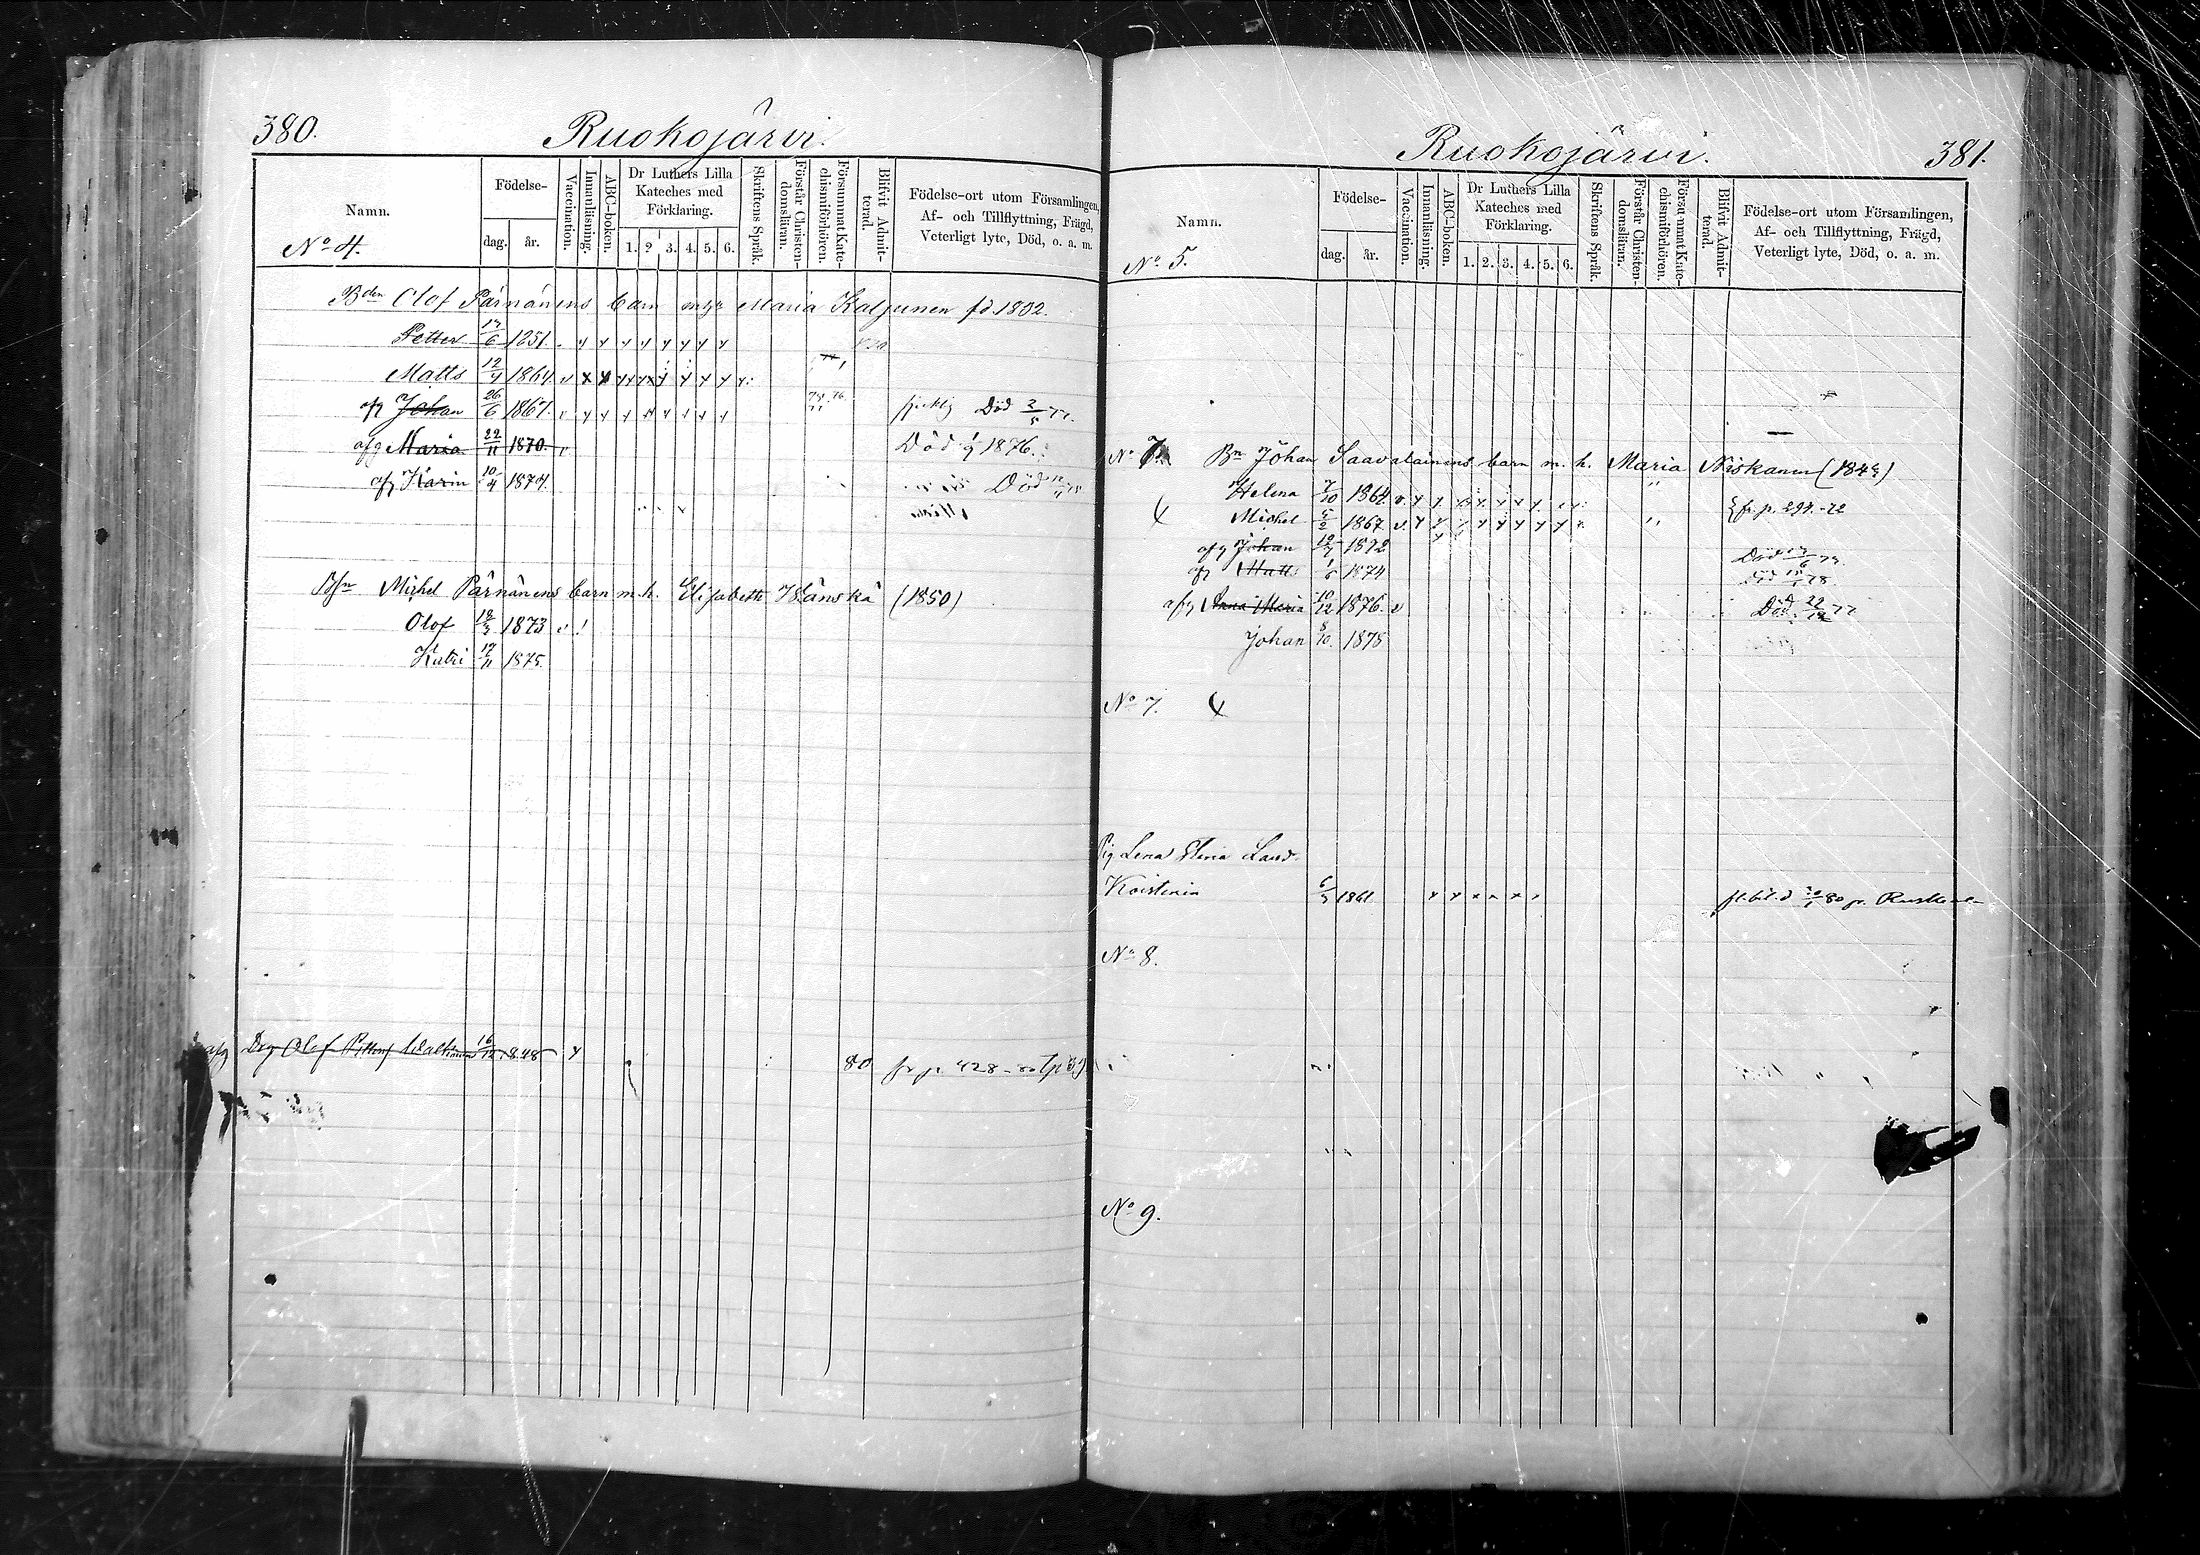 380.
Ruokojärvi.
Namn.
No 4.
Födelse-
dag.
år.
Vaccination.
Innanläsning.
ABC-boken.
Dr Luthers Lilla
Kateches med
Förklaring.
1. 2 3. 4. 5. 6.
Skriftens Språk.
Förstår Christen-
domsläran.
Försummat Kate-
chismiförhören.
Blifvit Admit-
terad.
Födelse-ort utom Församlingen,
Af- och Tillflyttning, Frägd,
Veterligt lyte, Död, o. a. m.
Bden Olof Pärnänens barn Maria Kaljunen fd. 1802.
Petter 6 1851.
Matts 12/4 1864
Johan 26/6 1867. Död 2/5 77.
afg Maria 22/11 1870. Död 1876.
afg Karin 10/4 1874. Död
Bsn Michel Pärnänens barn m. h. Elisabeth (1850)
Olof 1873
Katri 17/11 1875.
afg Drg Olof 1848 80 fr p. 428
381.
Ruokojärvi.
Namn.
No. 5.
Födelse-
dag.
år.
Vaccination.
Innanläsning.
ABC-boken.
Dr Luthers Lilla
Kateches med
Förklaring.
1. 2. 3. 4. 5. 6.
Skriftens Språk.
Förstår Christen-
domsläran.
Försummat Kate-
chismiförhören.
Blifvit Admit-
terad.
Födelse-ort utom Församlingen,
Af- och Tillflyttning, Frägd,
Veterligt lyte, Död, o. a. m.
No Bn Johan Saavalainens barn m. h. Maria Niskanen
Helena 7/10 1864
Michel 5/2 1867 fr. p. 294. -72
afg Johan 12/7 1872 Död
Matts 1/6 1874 Död 78.
afg Anna Maria 10/12 1876. Död 22/12 77
Johan 8/10. 1878
No 7.
Pig Lena
Koistinin 6/3 1861
No 8.
No 9.